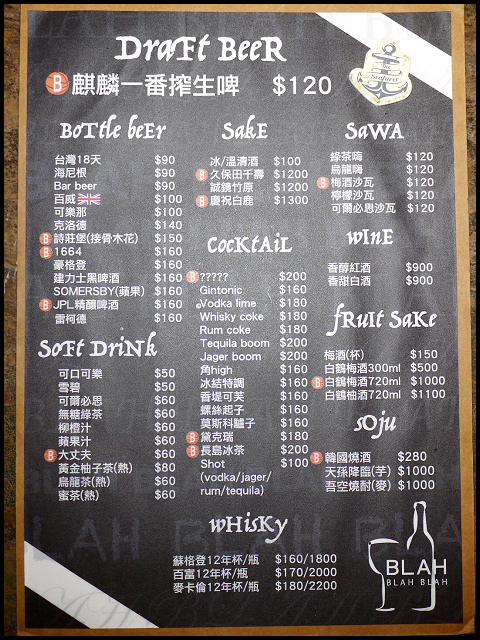 Draft Beer
B 麒麟一番搾生啤 $120
The Seafarer
Bottle beer
台灣18天 $90
海尼根 $90
Bar beer $90
百威 $100
可樂那 $100
克洛德 $140
B 詩莊堡(接骨木花) $150
B 1664 $160
豪格登 $160
建力士黑啤酒 $160
SOMERSBY(蘋果) $160
B JPL精釀啤酒 $160
雷柯德 $160
Soft Drink
可口可樂 $50
雪碧 $50
可爾必思 $60
無糖綠茶 $60
柳橙汁 $60
蘋果汁 $60
B 大丈夫 $60
黃金柚子茶(熱) $80
烏龍茶(熱) $60
蜜茶(熱) $60
Sake
冰/溫清酒 $100
B 久保田千壽 $1200
誠鏡竹原 $1200
B 慶祝白鹿 $1300
Cocktail
B ????? $200
Gintonic $180
Vodka lime $180
Whisky coke $180
Rum coke $180
Tequila boom $200
Jager boom $200
角high $160
冰結特調 $160
香堤可芙 $160
螺絲起子 $160
莫斯科驢子 $160
B 黛克瑞 $180
B 長島冰茶 $200
Shot $100
(vodka/jager/
rum/tequila)
Sawa
綠茶嗨 $120
烏龍嗨 $120
B 梅酒沙瓦 $120
檸檬沙瓦 $120
可爾必思沙瓦 $120
Wine
香醇紅酒 $900
香甜白酒 $900
Fruit Sake
梅酒(杯) $150
白鶴梅酒300ml $500
B 白鶴梅酒720ml $1000
白鶴柚酒720ml $1100
Soju
B 韓國燒酒 $280
天孫降臨(芋) $1000
吾空燒酎(麥) $1000
Whisky
蘇格登12年杯/瓶 $160/1800
百富12年杯/瓶 $170/2000
麥卡倫12年杯/瓶 $180/2200
BLAH
BLAH BLAH